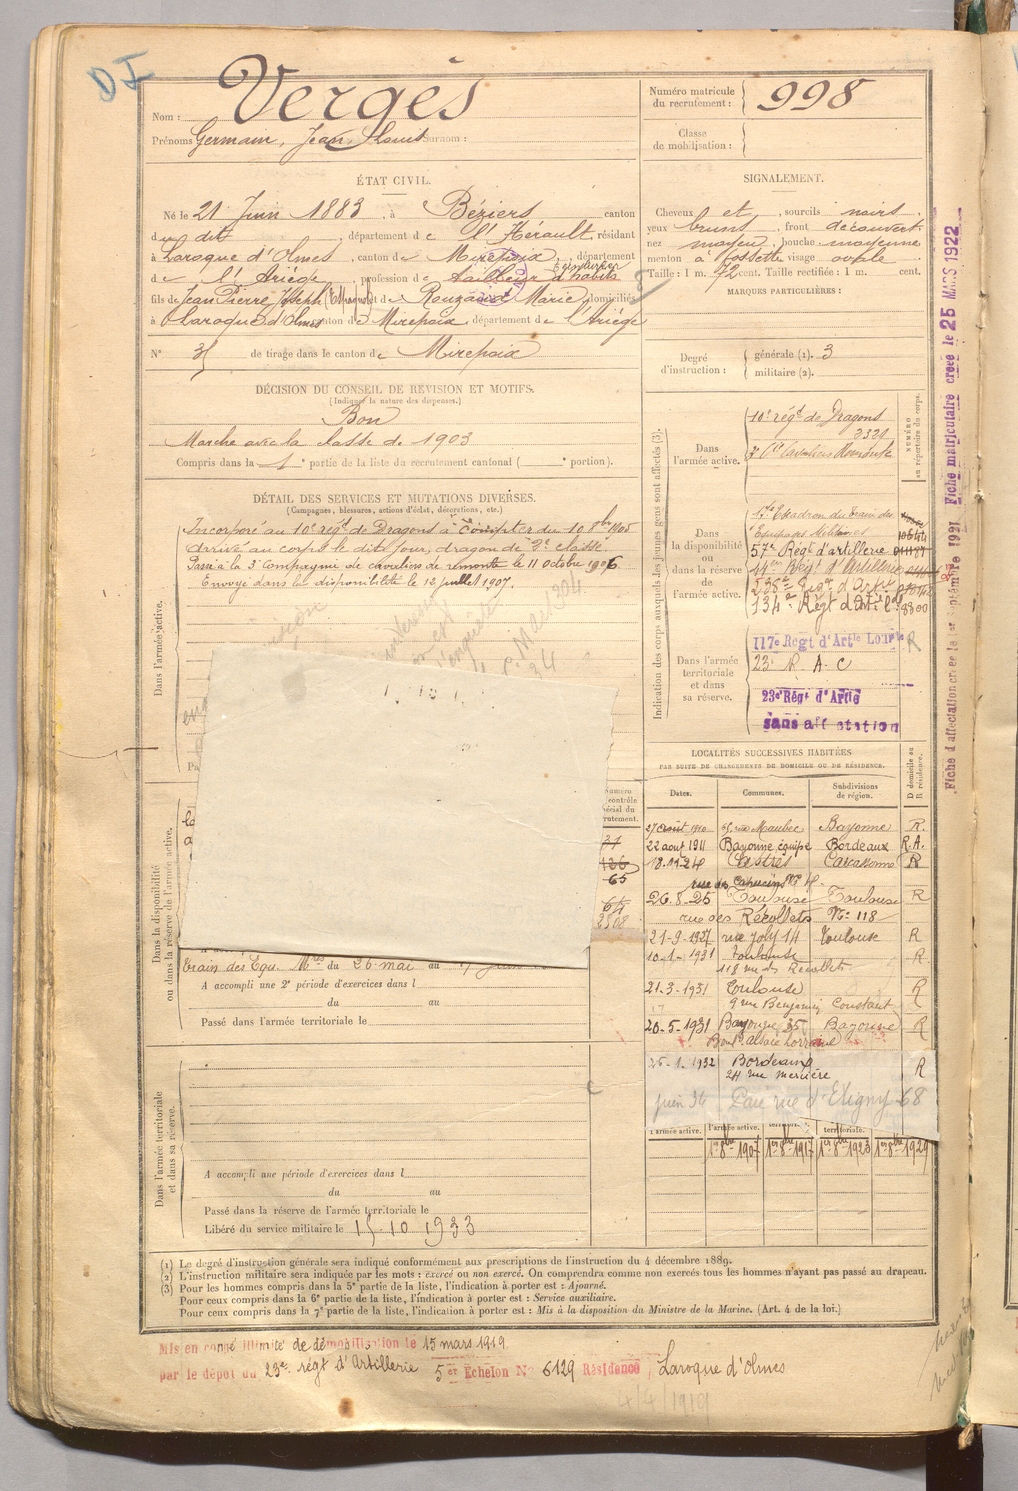 DI
Nom : Vergès
Prénoms Germain, Jean, Louis Surnom :
Numéro matricule
du recrutement : 998
Classe
de mobilisation :
ÉTAT CIVIL.
Né le 21 Juin 1883, à Béziers canton
du dit, département de l'Hérault, résidant
à Laroque d'Olmes, canton de Mirepoix, département
de l'Ariège, profession de tailleur d'habits
fils de Jean Pierre Joseph (Espagnol) et de Rouzaud Marie domiciliés
à Laroque d'Olmes canton de Mirepoix, département de l'Ariège
N° 35 de tirage dans le canton de Mirepoix
SIGNALEMENT.
Cheveux et, sourcils noirs,
yeux bruns, front découvert,
nez moyen, bouche moyenne
menton à fossette visage ovale
Taille : 1 m. 72 cent. Taille rectifiée : 1 m. cent.
MARQUES PARTICULIÈRES :
Degré
d'instruction :
générale (1). 3
militaire (2).
DÉCISION DU CONSEIL DE REVISION ET MOTIFS.
(Indiquer la nature des dispenses.)
Bon
Marche avec la classe de 1903
Compris dans la 1e partie de la liste du recrutement cantonal ( e portion).
DÉTAIL DES SERVICES ET MUTATIONS DIVERSES.
(Campagnes, blessures, actions d'éclat, décorations, etc.)
Dans l'armée active.
Incorporé au 10e régt de Dragons à compter du 10 8bre 1905
arrivé au corps le dit jour, dragon de 2e classe.
Passé à la 3e Compagnie de cavaliers de remonte le 11 Octobre 1906
Envoyé dans la disponibilité le 12 juillet 1907.
Indication des corps auxquels les jeunes gens sont affectés (3).
NUMÉRO
au répertoire du corps.
Dans
l'armée active.
10e régt de Dragons
2321
3e Cie Cavaliers Remonte
Dans
la disponibilité
ou dans la réserve
de
l'armée active.
Escadron du train des
Equipages Militaires
57e Régt d'artillerie
134e Régt d'Art. Lde 8800
117e Regt d'Artie Lourde R
Dans l'armée
territoriale
et dans
sa réserve.
23e R. A. C
23e Régt d'Artie
sans affectation
Fiche d'affectation créée le 1er Septembre 1921 Fiche matriculaire créée le 25 MARS 1922
LOCALITÉS SUCCESSIVES HABITÉES
PAR SUITE DE CHANGEMENTS DE DOMICILE OU DE RÉSIDENCE.
Dates. Communes. Subdivisions de région. D domicile ou R résidence.
27 août 1910 65, rue Maubec Bayonne R.
22 aout 1911 Bayonne équipe Bordeaux R.A.
18.11.24 Castres Carcassonne R
rue des Capucins N° 4.
26.8.25 Toulouse Toulouse R
rue des Récollets N° 118
21-9-1927 rue Joly 14 Toulouse R
10.1.1931 Toulouse R
118 rue des Recollets
21-3-1931 Toulouse R
9 rue Benjamin Constant
20-5-1931 Bayonne, 35 Bayonne R
Bould alsace Lorraine
25-1-1932 Bordeaux R
24 rue mercière
juin 36 Pau rue d'Etigny 68
l'armée active. l'armée active. territoriale.
1er 8bre 1907 1er 8bre 1917 1er 8bre 1923 1er 8bre 1929
Dans la disponibilité
ou dans la réserve de l'armée active.
65
64
2308
train des Equ. Mres du 26 mai au
A accompli une 2e période d'exercices dans l
du au
Passé dans l'armée territoriale le
Dans l'armée territoriale
et dans sa réserve.
A accompli une période d'exercices dans l
du au
Passé dans la réserve de l'armée territoriale le
Libéré du service militaire le 15.10 1933
(1) Le degré d'instruction générale sera indiqué conformément aux prescriptions de l'instruction du 4 décembre 1889.
(2) L'instruction militaire sera indiquée par les mots : exercé ou non exercé. On comprendra comme non exercés tous les hommes n'ayant pas passé au drapeau.
(3) Pour les hommes compris dans la 5e partie de la liste, l'indication à porter est : Ajourné.
Pour ceux compris dans la 6e partie de la liste, l'indication à porter est : Service auxiliaire.
Pour ceux compris dans la 7e partie de la liste, l'indication à porter est : Mis à la disposition du Ministre de la Marine. (Art. 4 de la loi.)
Mis en congé illimité de démobilisation le 15 mars 1919
par le dépôt du 23e régt d'Artillerie 5e Echelon N° 6129 Résidence, Laroque d'Olmes
4/4/1919